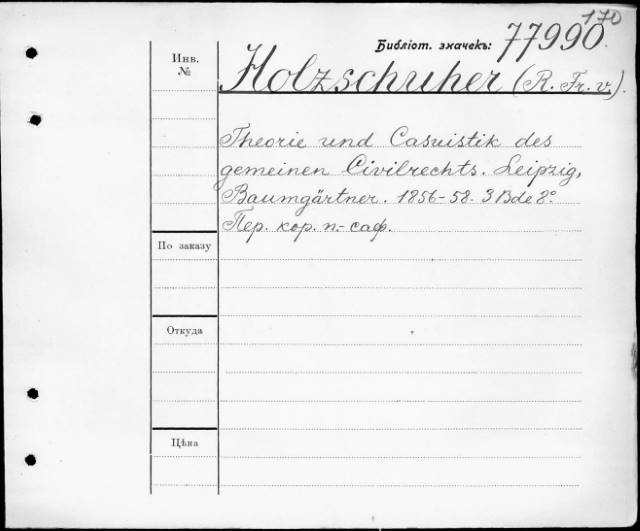 170
Библiот. значекъ: 77990.
Инв.
№
Holzschuher (R. Fr. v.).
Theorie und Casuistik des
gemeinen Civilrechts. Leipzig,
Baumgärtner. 1856-58. 3 Bde 8°.
Пер. кор. п.- саф.
По заказу
Откуда
Цѣна